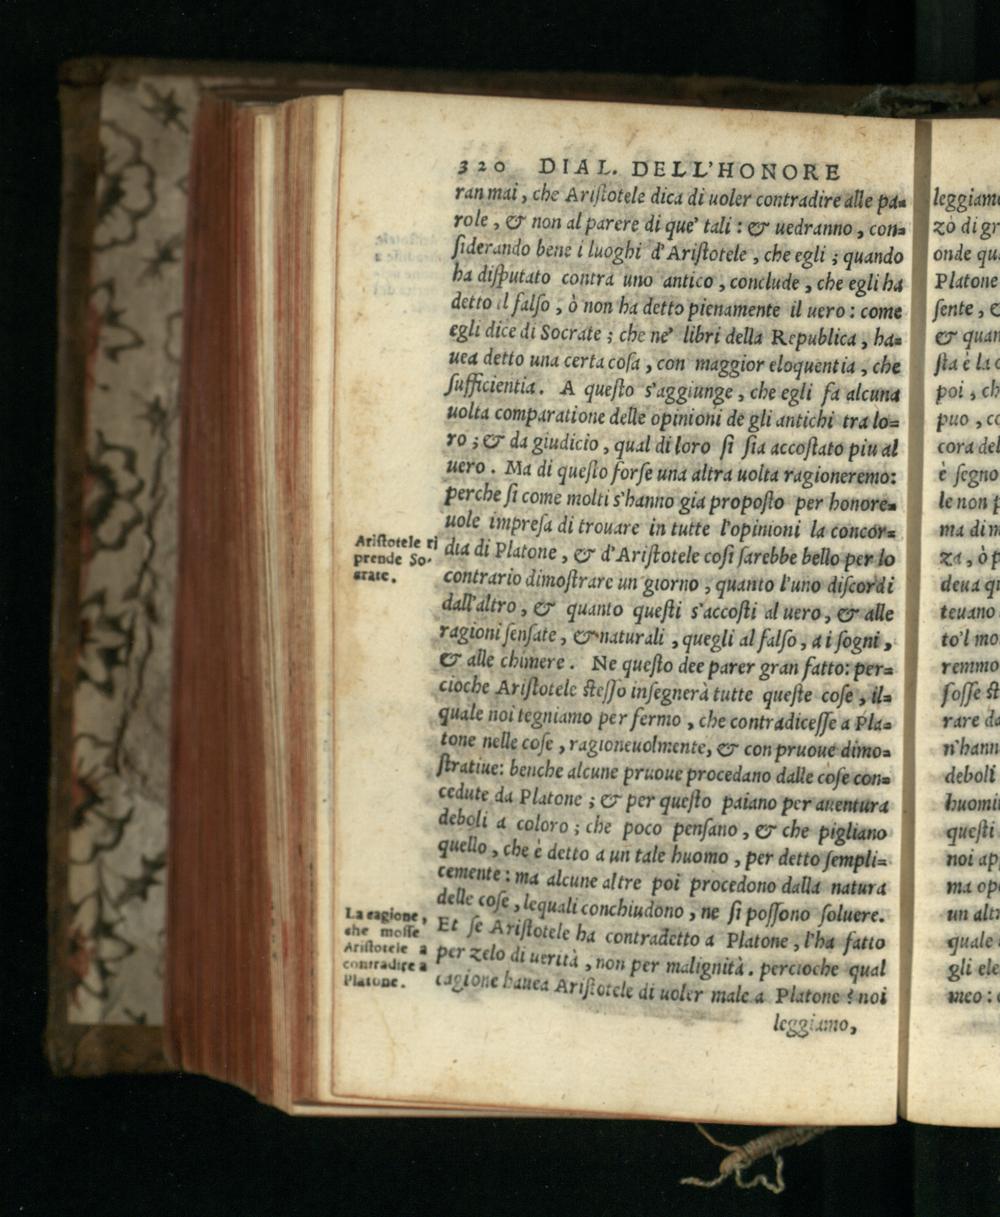 320 DIAL. DELL'HONORE
ran mai, che Ariſtotele dica di uoler contradire alle pa=
role, & non al parere di que' tali: & uedranno, con=
ſiderando bene i luoghi d'Ariſtotele, che egli; quando
ha diſputato contra uno antico, conclude, che egli ha
detto il falſo, ò non ha detto pienamente il uero: come
egli dice di Socrate; che ne' libri della Republica, ha=
uea detto una certa coſa, con maggior eloquentia, che
ſufficientia. A queſto s'aggiunge, che egli fa alcuna
uolta comparatione delle opinioni de gli antichi tra lo=
ro; & da giudicio, qual di loro ſi ſia accoſtato piu al
uero. Ma di queſto forſe una altra uolta ragioneremo:
perche ſi come molti s'hanno gia propoſto per honore=
uole impreſa di trouare in tutte l'opinioni la concor=
dia di Platone, & d'Ariſtotele coſi ſarebbe bello per lo
contrario dimoſtrare un giorno, quanto l'uno diſcordi
dall'altro, & quanto queſti s'accoſti al uero, & alle
ragioni ſenſate, & naturali, quegli al falſo, a i ſogni,
& alle chimere. Ne queſto dee parer gran fatto: per=
cioche Ariſtotele ſteſſo inſegnerà tutte queſte coſe, il=
quale noi tegniamo per fermo, che contradiceſſe a Pla=
tone nelle coſe, ragioneuolmente, & con pruoue dimo=
ſtratiue: benche alcune pruoue procedano dalle coſe con=
cedute da Platone; & per queſto paiano per auentura
deboli a coloro; che poco penſano, & che pigliano
quello, che è detto a un tale huomo, per detto ſempli=
cemente: ma alcune altre poi procedono dalla natura
delle coſe, lequali conchiudono, ne ſi poſſono ſoluere.
Et ſe Ariſtotele ha contradetto a Platone, l'ha fatto
per zelo di uerità, non per malignità. percioche qual
cagione hauea Ariſtotele di uoler male a Platone? noi
leggiamo,
Ariſtotele ri
prende So-
crate.
La cagione,
che moſſe
Ariſtotele a
contradire a
Platone.
leggiamo
zo di gr
onde qu
Platone
ſente, &
& quan
ſta è la c
poi, ch
puo, co
cora del
è ſegno
le non p
ma di m
za, ò p
deua qu
teuano
to'l mo
remmo
foſſe ſt
rare da
n'hann
deboli
huomi
queſti
noi ap
ma op
un altr
quale
gli ele
meo: c